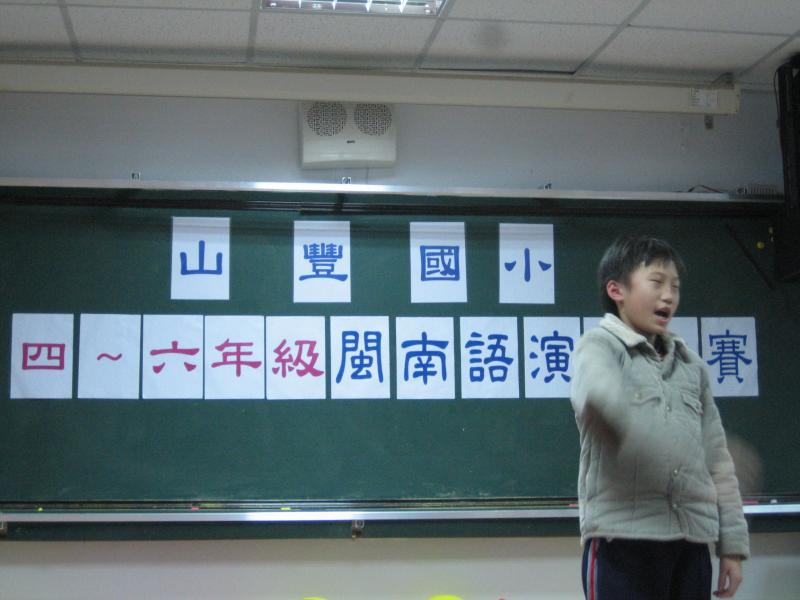 山豐國小
四~六年級閩南語演賽